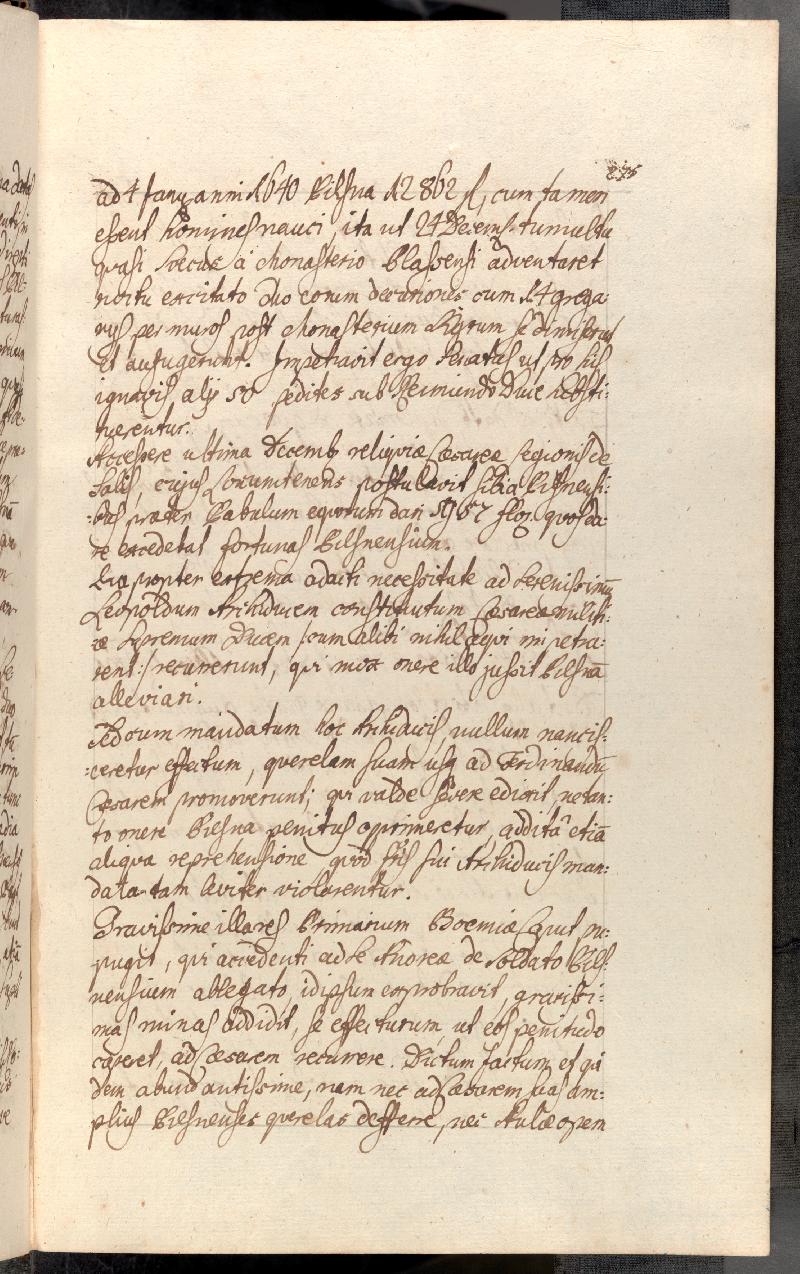 235
ad 4 Janu anni 1640 Pilsna 12862 fl, cum tamen
essent homines nauci, ita ut 24 Decemb. tumultu
quasi Suecus à Monasterio Plassensi adventaret
noctu excitato duo eorum decuriones cum 14 grega:
rijs per muros post Monasterium se dimiserint
et aufugerunt. Impetravit ergo Senatus ut pro his
ignavis alij 50 pedites sub Reimundo Duce substi:
tuerentur.
Accessere ultima Decemb reliquiæ Cæsareæ legionis de
Salis, cujus Locumtenens postulavit sibi a Pilsnensi:
:bus præter Pabulum equorum dari 1957 flor. quos da:
re excedebat fortunas Pilsnensium.
Eapropter extrema adacti necessitate ad Serenissimū
Leopoldum Archiducem constitutum Cæsareæ militi:
æ Supremum Ducem /:cum alibi nihil æqui impetra:
rent:/ recurrerunt, qui mox onere illo jussit Pilsnā
alleviari.
Sed cum mandatum hoc Archiducis nullum nancis:
:ceretur effectum, querelam suam usq ad Ferdinandū
Cæsarem promoverunt; qui valde severe edixit, ne tan:
to onere Pilsna penitus opprimeretur, additâ etiā
aliqua reprehensione, quod sris sui Archiducis man:
data tam leviter violarentur.
Gravissime illa res Primarium Boemiæ Caput pu:
pugit, qui accedenti ad se Andreæ de Soldato Pils:
nensium ablegato, idipsum exprobravit, gravissi:
mas minas addidit, se effecturum, ut eos penitudo
caperet, ad Cæsarem recurrere. Dictum factum et qui
dem abundantissime, nam nec ad Cæsarem suas am:
plius Pilsnenses querelas defferre, nec Aulæ opem